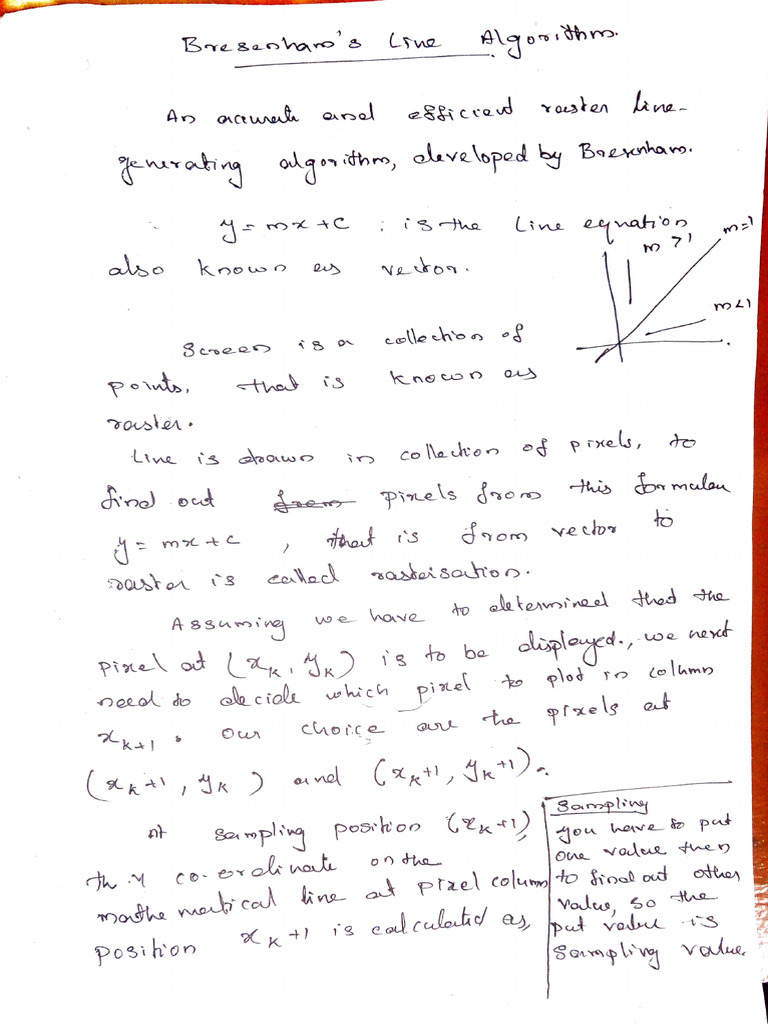 Bresenham's Line Algorithm.
An accurate and efficient raster line-
generating algorithm, developed by Bresenham.
y = mx + c : is the line equation
also known as vector.
m > 1
m = 1
m < 1
Screen is a collection of
points, that is known as
raster.
Line is drawn in collection of pixels, to
find out from pixels from this formulea
y = mx + c , that is from vector to
raster is called rasterisation.
Assuming we have to determined that the
pixel at (x_k, y_k) is to be displayed., we next
need to decide which pixel to plot in column
x_{k+1}. our choice are the pixels at
(x_k+1, y_k) and (x_k+1, y_k+1).
At sampling position (x_k+1)
th y co-ordinate on the
mathematical line at pixel column
position x_k+1 is calculated as,
Sampling
you have to put
one value then
to find out other
value, so the
put value is
sampling value.